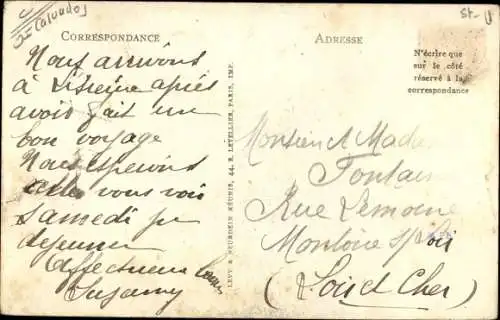 (Calvados)
CORRESPONDANCE
Nous arrivons
à Lisieux après
avoir fait un
bon voyage
Nous esperons
aller vous voir
samedi pr
dejeuner
Affectueux
Suzanny
LEVY & NEURDEIN RÉUNIS, 44, R. LETELLIER, PARIS, IMP.
ADRESSE
N'écrire que
sur le côté
réservé à la
correspondance
Monsieur et Madame
Fontaine
Rue Lemoine
Montoire s/ Loir
(Loir et Cher)